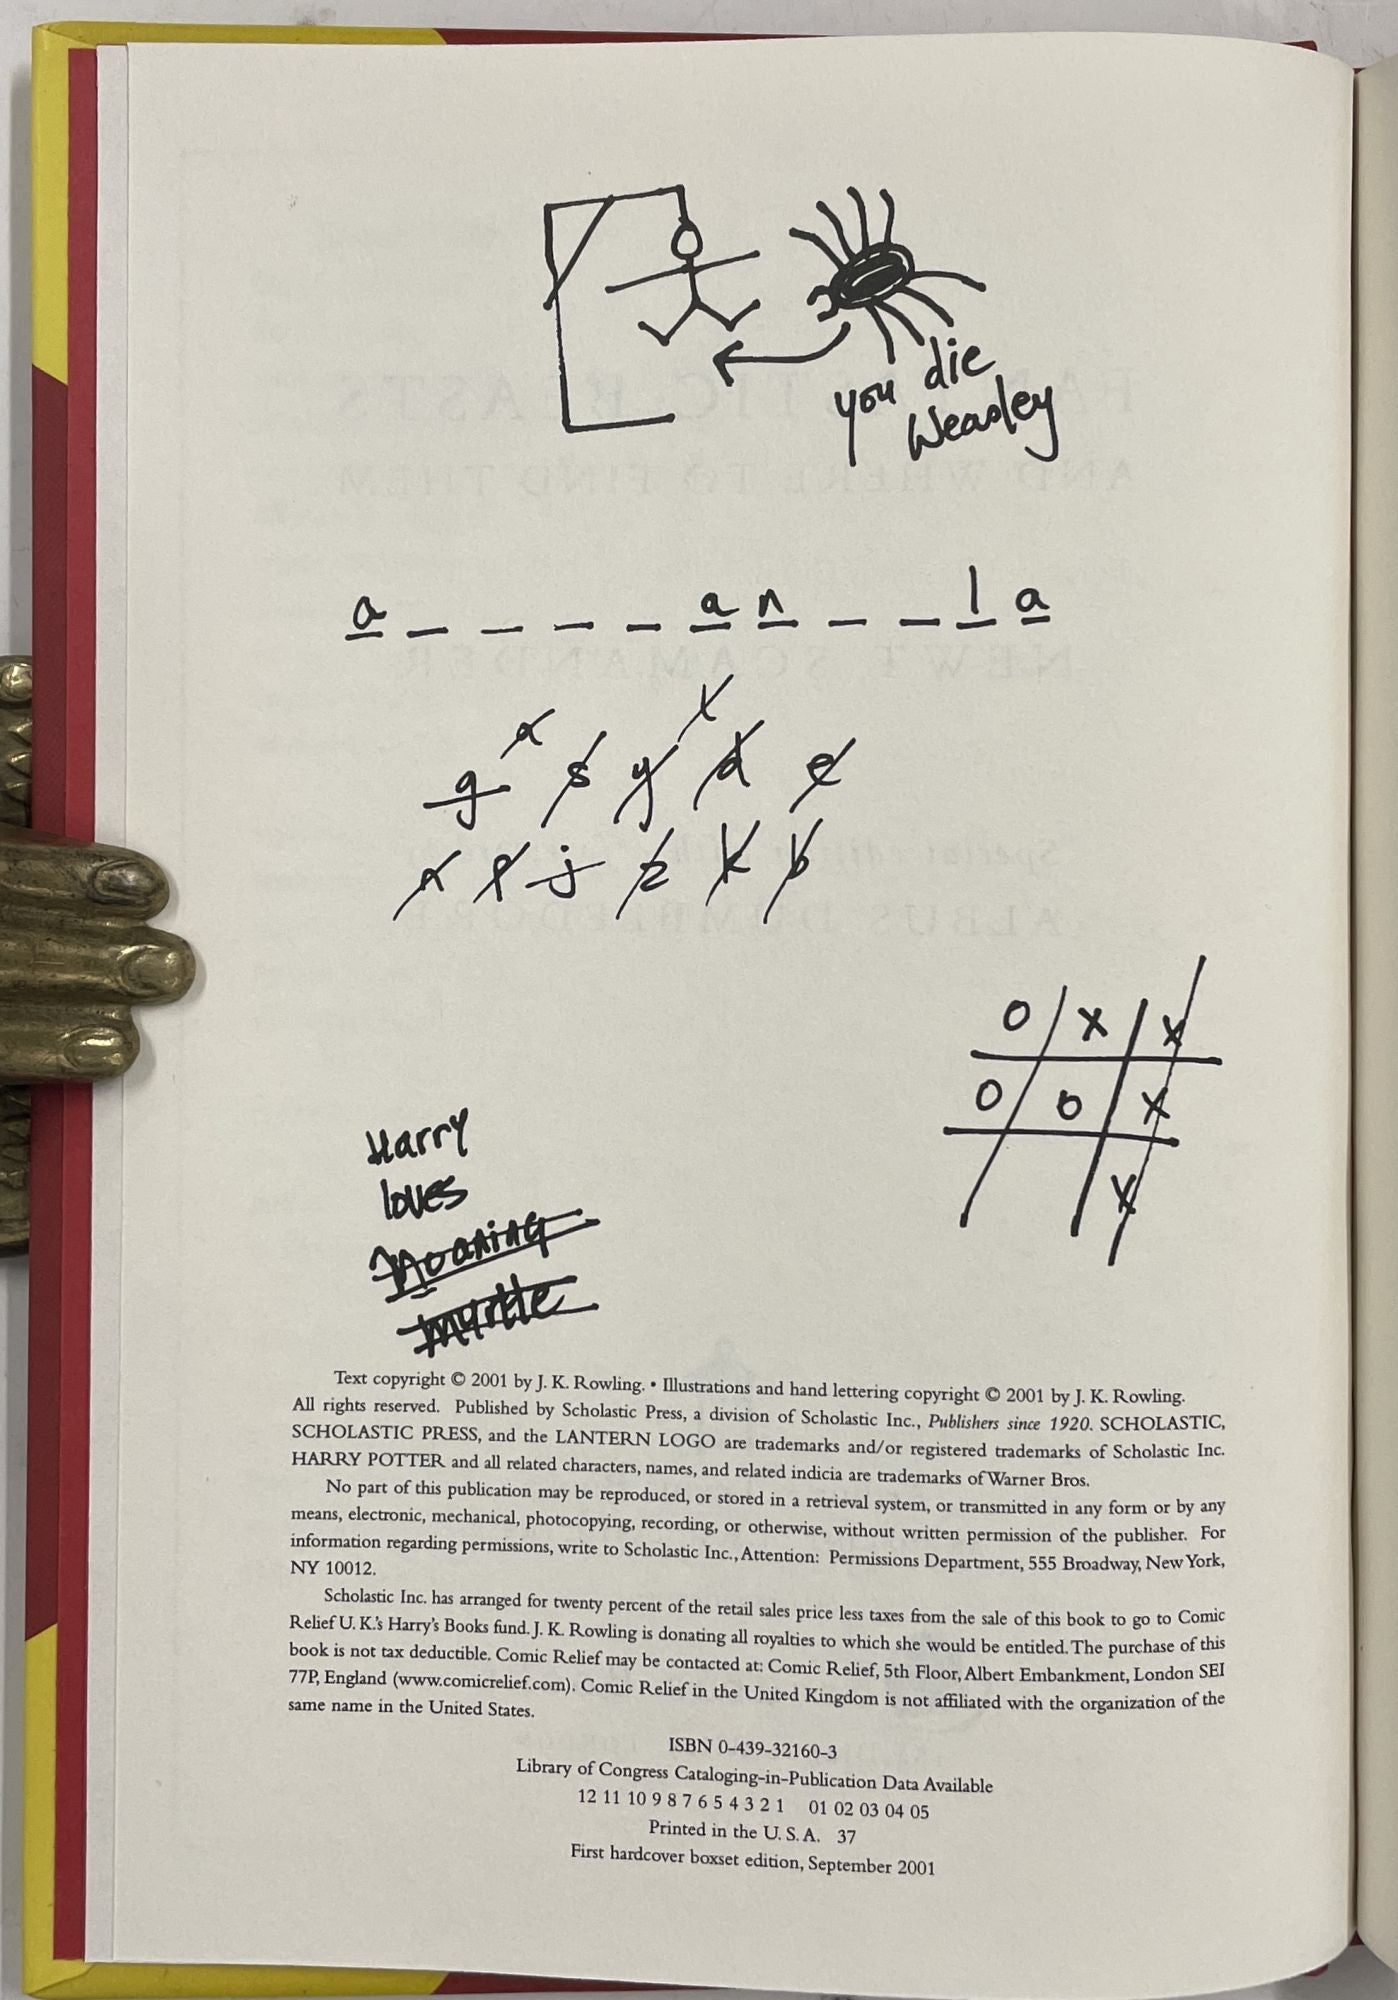 you die
Weasley
a _ _ _ _ a n _ _ l a
x t
g s y d e
r p j z k b
O X X
O O X
X
Harry
loves
Moaning
Myrtle
Text copyright © 2001 by J. K. Rowling. • Illustrations and hand lettering copyright © 2001 by J. K. Rowling.
All rights reserved. Published by Scholastic Press, a division of Scholastic Inc., Publishers since 1920. SCHOLASTIC,
SCHOLASTIC PRESS, and the LANTERN LOGO are trademarks and/or registered trademarks of Scholastic Inc.
HARRY POTTER and all related characters, names, and related indicia are trademarks of Warner Bros.
No part of this publication may be reproduced, or stored in a retrieval system, or transmitted in any form or by any
means, electronic, mechanical, photocopying, recording, or otherwise, without written permission of the publisher. For
information regarding permissions, write to Scholastic Inc., Attention: Permissions Department, 555 Broadway, New York,
NY 10012.
Scholastic Inc. has arranged for twenty percent of the retail sales price less taxes from the sale of this book to go to Comic
Relief U. K.'s Harry's Books fund. J. K. Rowling is donating all royalties to which she would be entitled. The purchase of this
book is not tax deductible. Comic Relief may be contacted at: Comic Relief, 5th Floor, Albert Embankment, London SEI
77P, England (www.comicrelief.com). Comic Relief in the United Kingdom is not affiliated with the organization of the
same name in the United States.
ISBN 0-439-32160-3
Library of Congress Cataloging-in-Publication Data Available
12 11 10 9 8 7 6 5 4 3 2 1 01 02 03 04 05
Printed in the U. S. A. 37
First hardcover boxset edition, September 2001